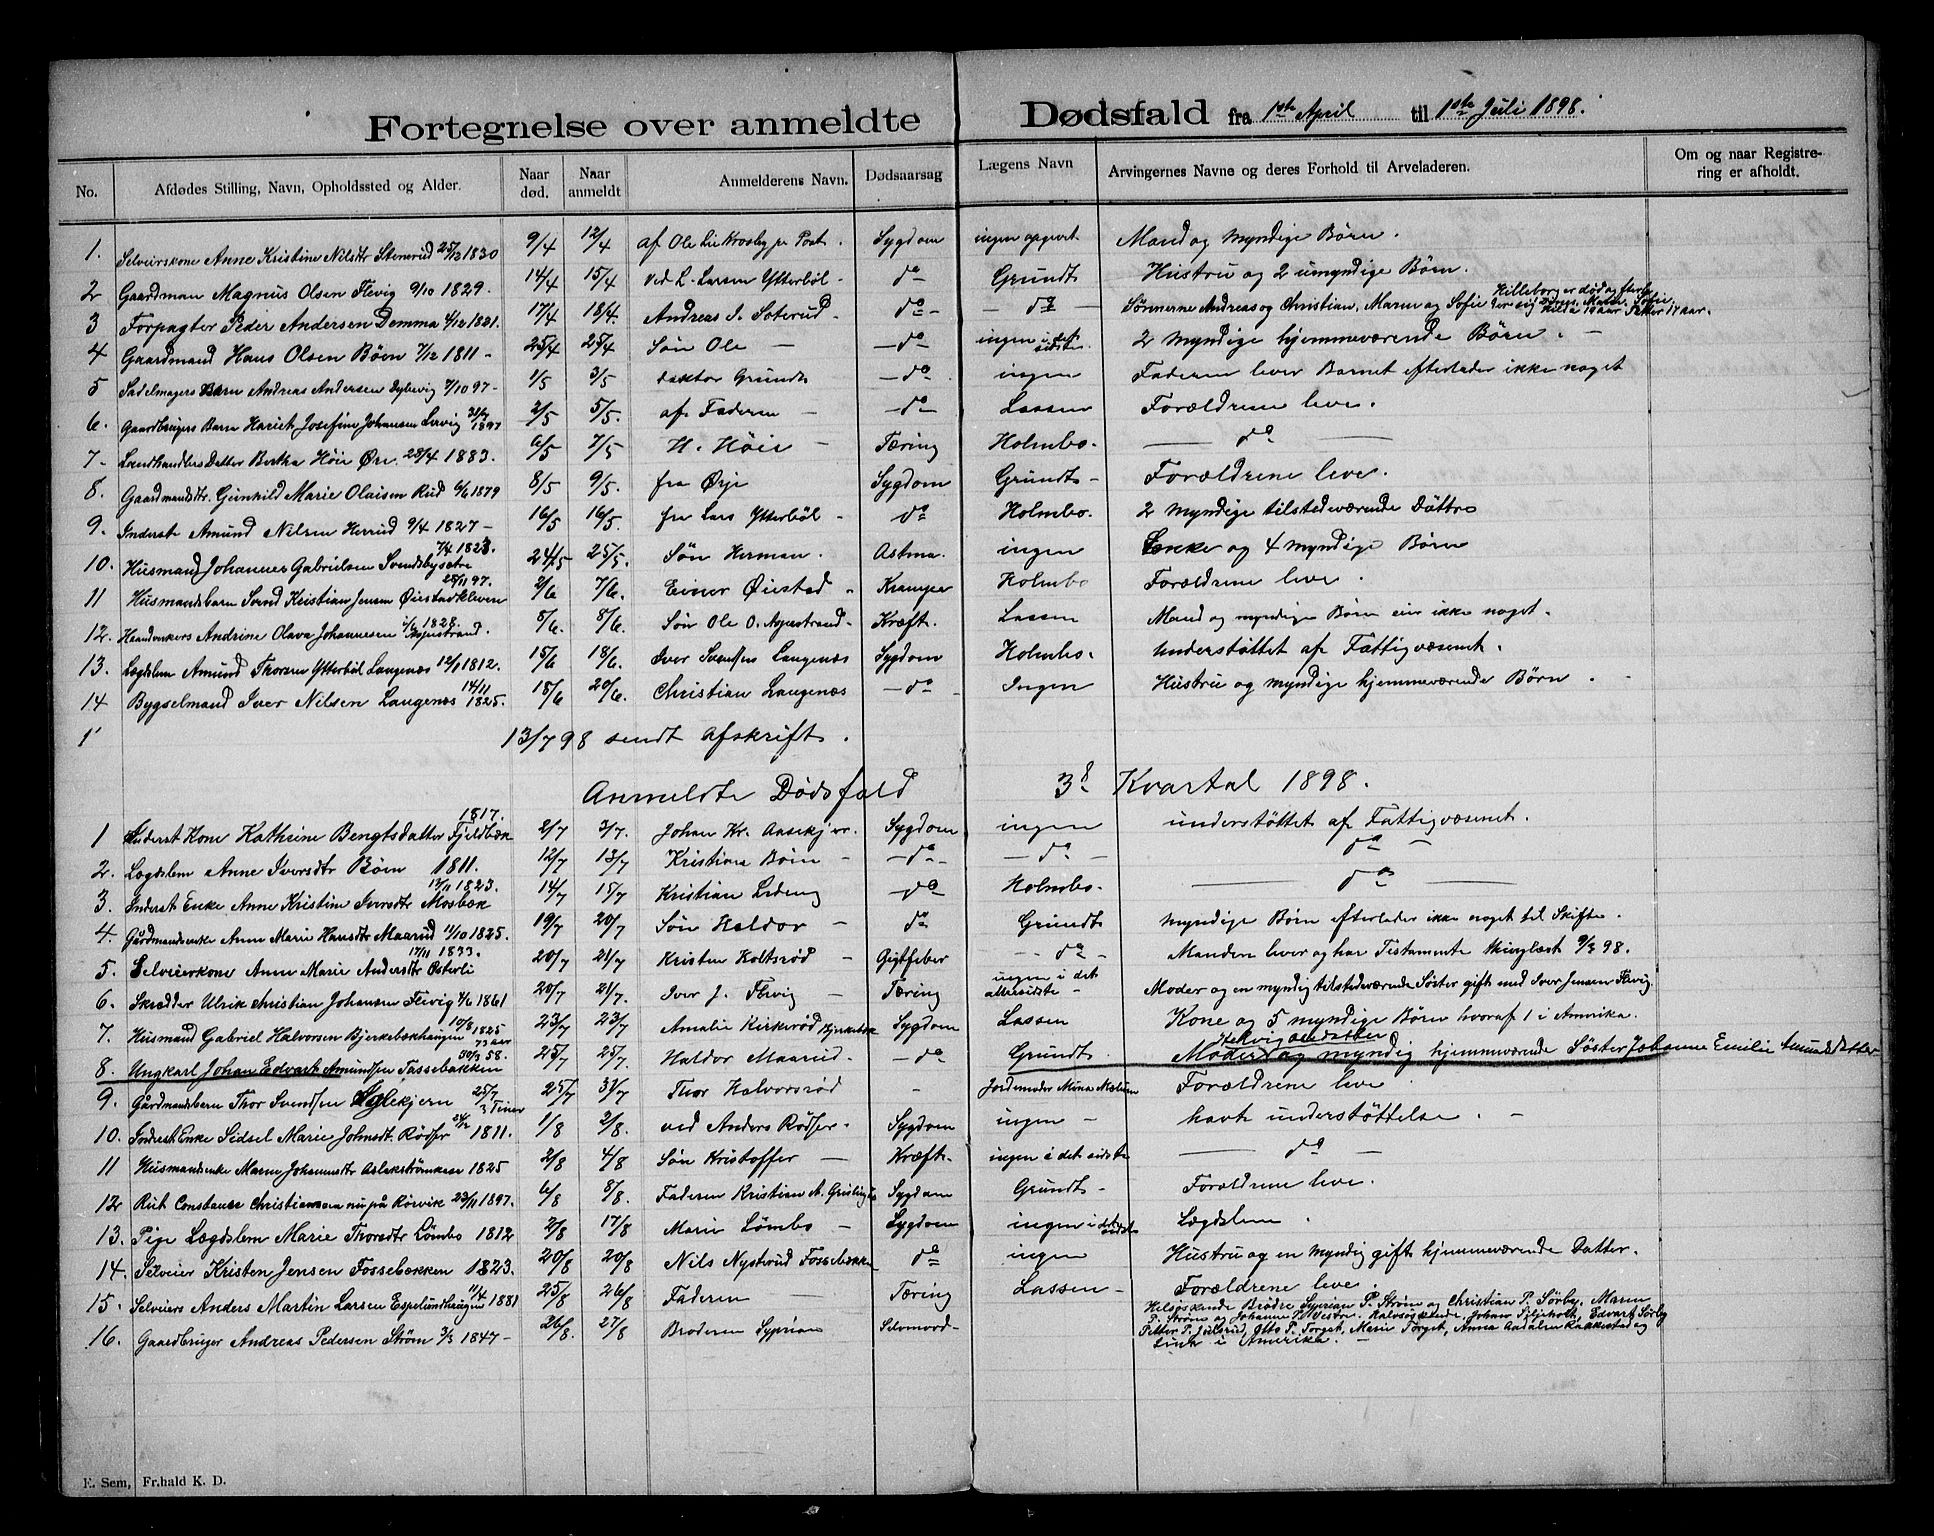 Fortegnelse over anmeldte Dødsfald fra 1ste April til 1ste Juli 1898.
No. Afdødes Stilling, Navn, Opholdssted og Alder. Naar død. Naar anmeldt Anmelderens Navn. Dødsaarsag Lægens Navn Arvingernes Navne og deres Forhold til Arveladeren. Om og naar Registrering er afholdt.
1. Selveierskone Anne Kristine Nilsdtr Stenerud 25/12 1830 9/4 12/4 af Ole Lie Krosby pr Post. Sygdom ingen opgivet. Mand og myndige Børn.
2 Gaardman Magnus Olsen Flevig 9/10 1829. 14/4 15/4 ved L. Larsen Ytterböl - do Grundt Hustru og 2 umyndige Børn.
3 Forpagter Peder Andersen Demma 4/12 1821. 17/4 18/4. Andreas S. Soterud - do - - do Sønnerne Andreas og Christian, Maren og Sofie Hilleborg er død
4 Gaardmand Hans Olsen Böen 7/12 1811 - 25/4 25/4 Søn Ole - - do - ingen i det sidste. 2 myndige hjemmeværende Børn. -
5 Sadelmagers Barn Andreas Andersen 7/10 97 - 1/5 3/5 doktor Grundt - do - ingen Faderen lever Barnet efterlader ikke noget
6. Gaardbrugers Barn Hariet Josefine Johansen Lervig 1897 2/5 5/5. af Faderen - - do - Lassen Forældrene leve.
7. Landhandlers Datter Bertha Höie Ørje. 28/4 1883. 6/5 7/5 H. Höie - Tæring Holmbo. - do -
8. Gaardmandsdtr. Gunhild Marie Olaisen Rud 6/6 1879 8/5 9/5. fra Ørje Sygdom Grundt - Forældrene leve.
9. Inderst Amund Nilsen Herrud 9/4 1827 - 16/5 16/5. fra Lars Ytterböl - do Holmbo. 2 myndige tilstedeværende Döttre
10. Husmand Johannes Gabrielsen Svendsbysætre 7/4 1823. 24/5 25/5. Søn Herman. Astma. ingen Enke og 4 myndige Børn
11 Husmandsbarn Svend Kristian Jensen Øiestadkleven 28/11 97. 2/6 7/6. Einer Øiestad - Krampe Holmbo Forældrene leve.
12. Haandverkers Andrine Olava Johannesen 1828. 5/6. 8/6. Søn Ole O. - Kræft. Lassen Mand og myndige Børn eier ikke noget.
13. Lægdslem Amund Thoresen Ytterböl Langenæs 12/1 1812. 15/6 18/6. Iver Svendsen Langenæs Sygdom Holmbo. understøttet af Fattigvæsenet.
14 Bygselmand Iver Nilsen Langenæs 14/11 1825. 18/6 20/6. Christian Langenæs - do - Ingen Hustru og myndige hjemmeværende Børn. -
1' 13/7 98 sendt afskrift.
Anmeldte Dødsfald 3die Kvartal 1898.
1 Inderst Kone Kathrine Bengtsdatter Fjeldbæk 1817. 2/7 3/7. Johan Kr. Aasekjær. Sygdom ingen understøttet af Fattigvæsenet.
2. Lægdslem Anne Iversdtr Böen 1811. 12/7 13/7 Kristian Böen - - do - - do - do -
3. Inderst Enke Anne Kristine Iversdtr Mosbæk 13/11 1823. 14/7 15/7 Kristian Lideng - do Holmbo. - do -
4. Gårdmandsenke Anne Marie Hansdtr Maarud 11/10 1825. 19/7 20/7 Søn Haldor - do Grundt myndige Børn efterlader ikke noget til Skifte.
5. Selveierkone Anne Marie Andersdtr Østerli 17/11 1833. 20/7 21/7 Kristen Holtsrød - Gigtfeber - do - Manden lever og har Testamente 98.
6. Skrædder Ulrik Christian Johansen Flevig 4/6 1861 20/7 21/7. Iver J. Flevig - Tæring ingen i det allersidste - Moder og en myndig tilstedeværende Søster gift med Iver Jensen Flevig.
7. Husmand Gabriel Halvorsen Bjerkebækhaugen 10/8 1825 73 aar 23/7 23/7 Amalie Kirkerød Bjerkebæk Sygdom Lassen Kone og 5 myndige Børn hvoraf 1 i Amerika.
8. Ungkarl Johan Edvart Amundsen Fossebakken 30/3 58. 25/7 25/7. Haldor Maarud. - do Grundt. Moder Hekvig og myndig hjemmeværende Søster Johanne Emilie Amundsdatter
9. Gårdmandsbarn Thor Svendsen Øglekjern 25/7 3 Timer 25/7 31/7 Thor Halvorsrød - Jordemoder Mina Forældrene leve
10. Inderst Enke Sidsel Marie Johnsdt. Rødser 1811. 1/8 2/8. ved Anders Rødser. Sygdom ingen - havt understøttelse. -
11 Husmandsenke Maren Johannesdtr 1825 2/8 4/8 Søn Kristoffer - Kræft. ingen i det sidste - do -
12 Rut Constance Christiansen nu på Rørvik 23/11 1897. 6/8 8/8. Faderen Kristian A. Sygdom Grundt - Forældrene leve.
13. Pige Lægdslem Marie Thorsdtr Lömbo 1812 2/8 17/8 Marie Lömbo - Sygdom ingen i det sidste Lægdslem.
14. Selveier Kristen Jensen Fossebækken 1823. 20/8 20/8 Nils Nystrud Fossebækken do ingen Hustru og en myndig gift hjemmeværende Datter.
15. Selveiers Anders Martin Larsen Espelundhaugen 11/4 1881 25/8 26/8 Faderen - Tæring Lassen - Forældrene leve.
16. Gaardbruger Andreas Pedersen Strøm 3/3 1847 - 26/8. 27/8 Broderen Syprian Selvmord - Helsøskende Brødre Syprian P. Strøm og Christian P. Sørby, Maren
P. Strøm og Johanne P. Vestre. Halvsøskende Johan Edvart Sørby
Petter P. Otto P. Torget, Marie Torget, Anna Rakkestad og
i Amerika. -
E. Sem, Fr.hald K. D.